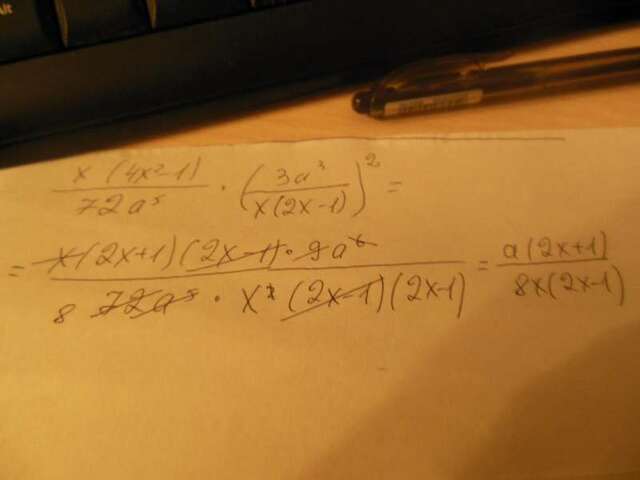 x (4x²-1) / 72a⁵ · (3a³ / x(2x-1))² =
= x(2x+1)(2x-1)·9a⁶ / 8 72a⁵ · x² (2x-1)(2x-1) = a(2x+1) / 8x(2x-1)